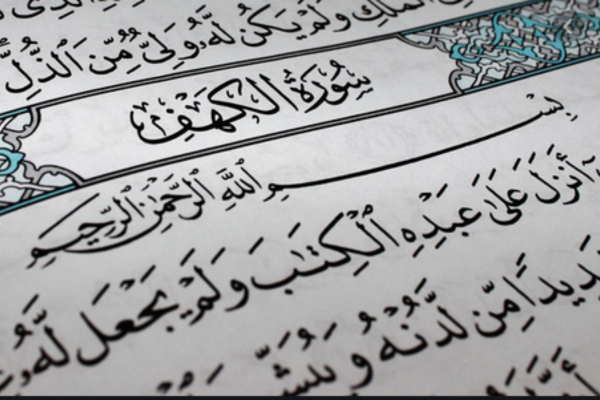 ٱلْمُلْكِ وَلَمْ يَكُن لَّهُۥ وَلِىٌّ مِّنَ ٱلذُّلِّ
سُورَةُ الكَهْفِ
بِسْمِ اللَّهِ الرَّحْمَٰنِ الرَّحِيمِ
أَنزَلَ عَلَىٰ عَبْدِهِ ٱلْكِتَٰبَ وَلَمْ يَجْعَل لَّهُۥ
مِّن لَّدُنْهُ وَيُبَشِّرَ